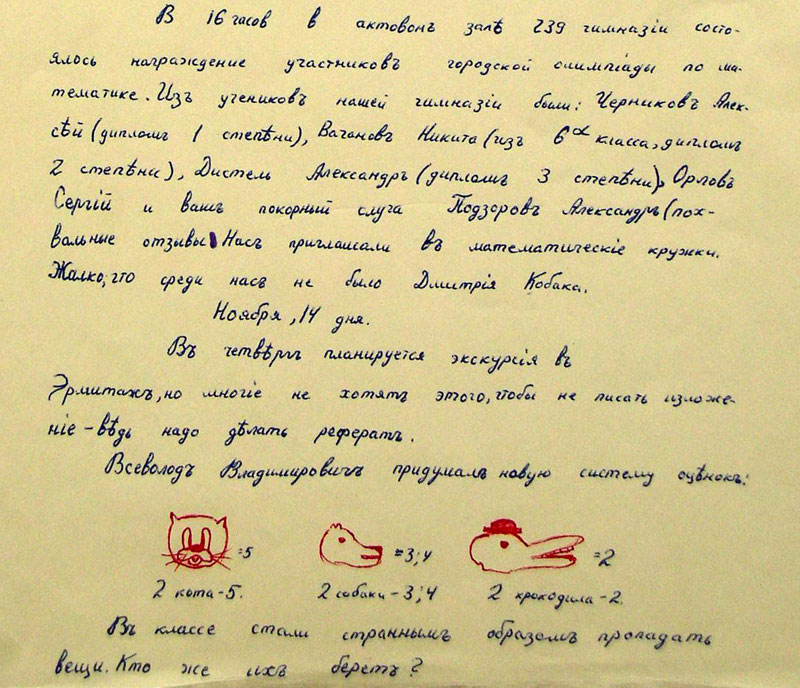 В 16 часов в актовомъ залѣ 239 гимназіи состо-
ялось награждение участниковъ городской олимпіады по ма-
тематике. Изъ учениковъ нашей гимназіи были: Черниковъ Алек-
сѣй (дипломъ 1 степѣни), Вагановъ Никита (изъ 6α класса, дипломъ
2 степѣни), Дистель Александръ (дипломъ 3 степѣни), Орловъ
Сергій и вашъ покорный слуга Подзоровъ Александръ (пох-
вальные отзывы) Насъ приглашали въ математическіе кружки.
Жалко, что среди насъ не было Дмитрія Кобака.
Ноября, 14 дня.
Въ четвѣргъ планируется экскурсія въ
Эрмитажъ, но многіе не хотятъ этого, чтобы не писать изложе-
ніе - вѣдь надо дѣлать рефератъ.
Всеволодъ Владимировичъ придумалъ новую систему оцѣнокъ:
=5 =3;4 =2
2 кота-5. 2 собаки-3;4 2 крокодила-2.
Въ классе стали страннымъ образомъ пропадать
вещи. Кто же ихъ беретъ?